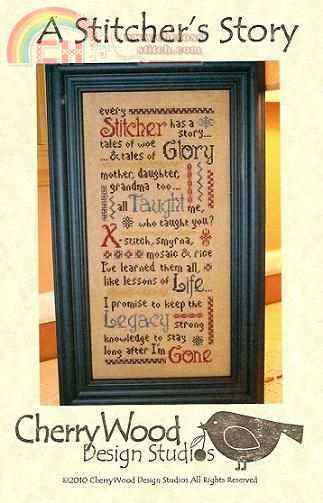 A Stitcher's Story
stitch.com
every
Stitcher has a
story...
tales of woe
...& tales of Glory
mother, daughter,
grandma too...
all Taught me,
who taught you?
X-stitch, smyrna,
mosaic & rice
I've learned them all,
like lessons of Life...
I promise to keep the
Legacy strong
knowledge to stay
long after I'm Gone
CherryWood
Design Studios
©2010 CherryWood Design Studios All Rights Reserved